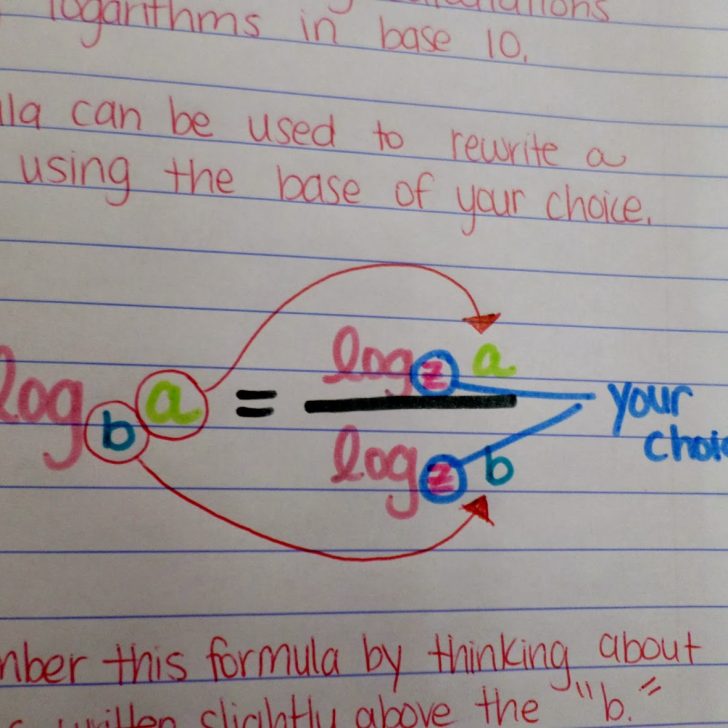 logarithms in base 10.
can be used to rewrite a
using the base of your choice.
log_b a = log_z a / log_z b
your
this formula by thinking about
written slightly above the "b."